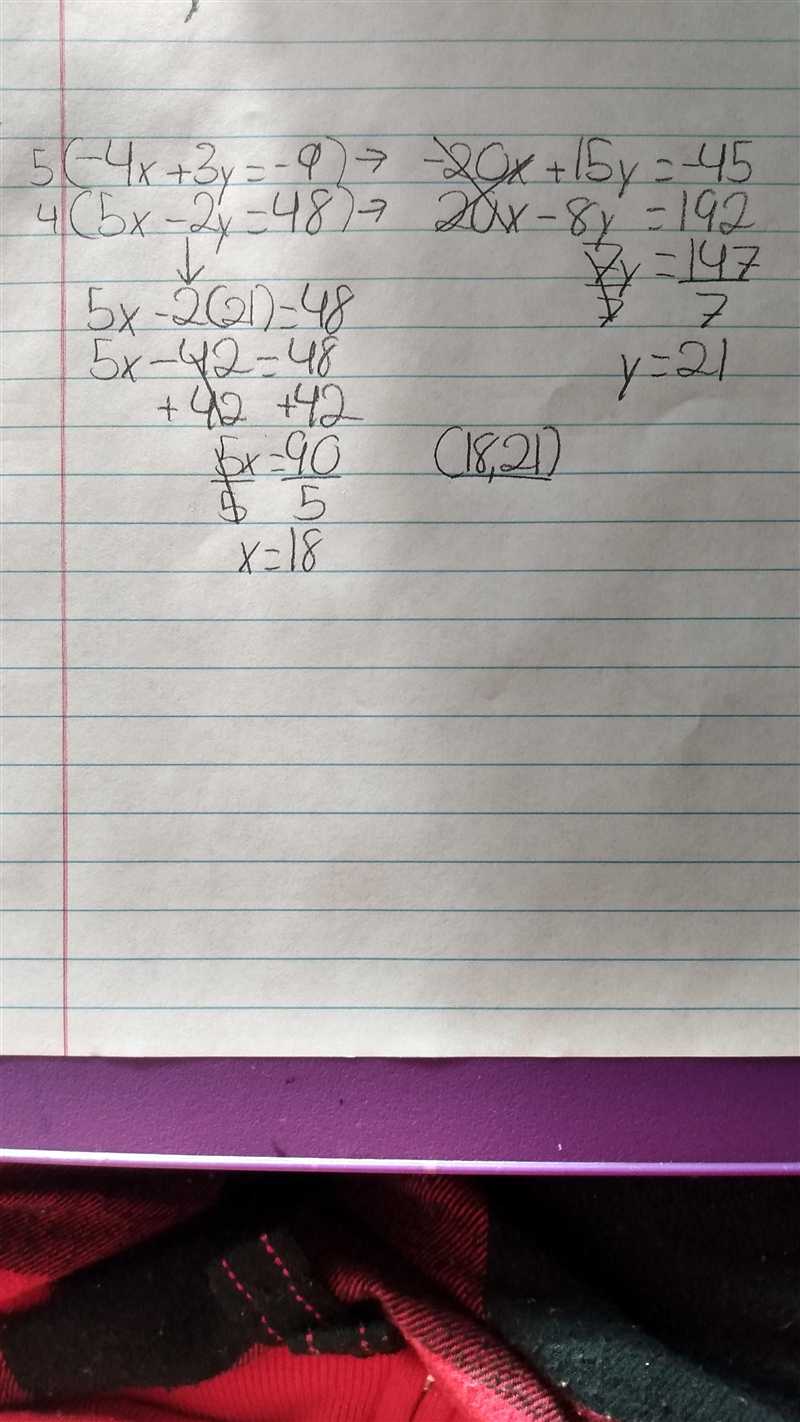 5(-4x+3y=-9)→ -20x+15y=-45
4(5x-2y=48)→ 20x-8y=192
↓
7y=147
7 7
5x-2(21)=48
5x-42=48
y=21
+42 +42
5x=90
5 5
(18,21)
x=18